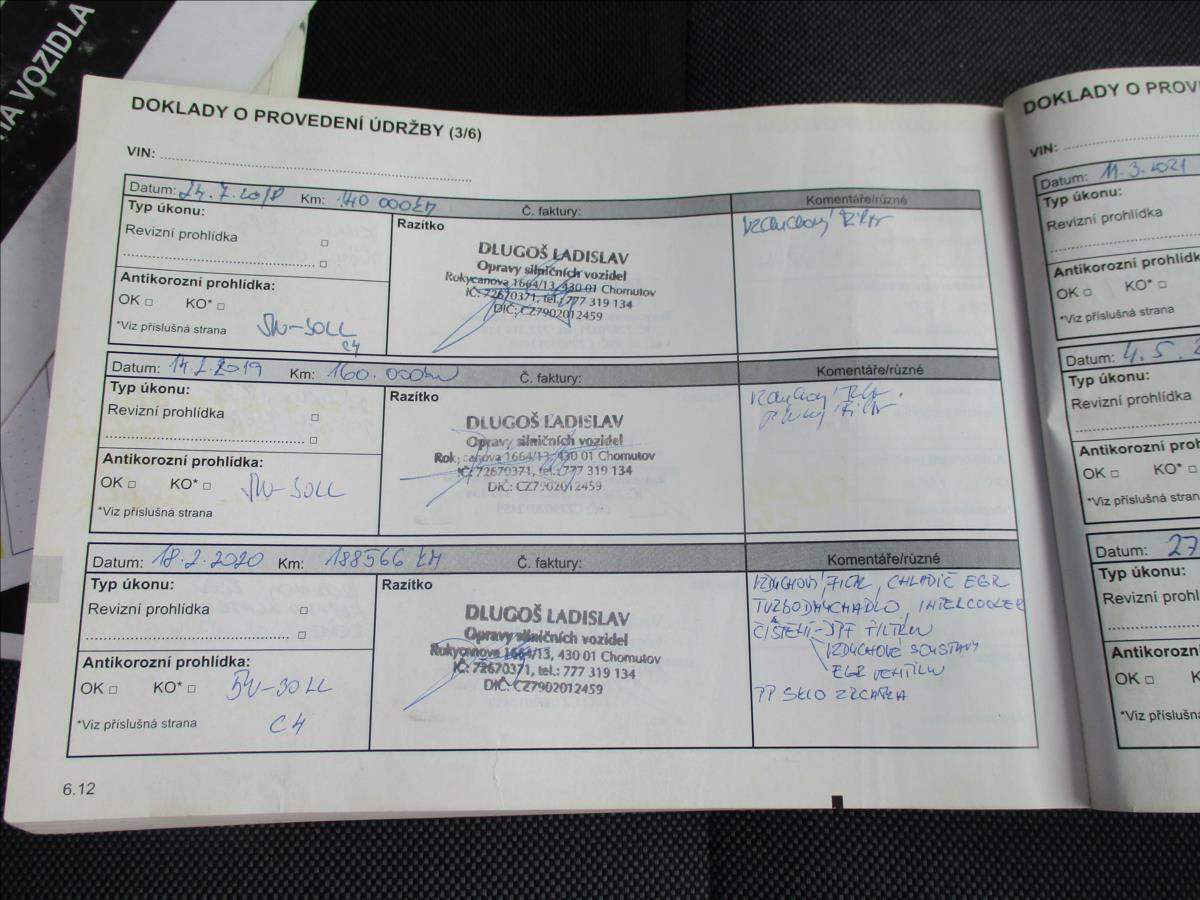 NA VOZIDLA
DOKLADY O PROVEDENÍ ÚDRŽBY (3/6)
VIN:
Datum: 24.7.2018 Km: 140 000km Č. faktury: Komentáře/různé
Typ úkonu:
Revizní prohlídka
Antikorozní prohlídka:
OK KO*
*Viz příslušná strana
5W-30LL
C4
Razítko
DLUGOŠ LADISLAV
Opravy silničních vozidel
Rokycanova 1664/13, 430 01 Chomutov
IČ: 72670371, tel.: 777 319 134
DIČ: CZ7902012459
Vzduchový filtr
Datum: 14.2.2019 Km: 160.000km Č. faktury: Komentáře/různé
Typ úkonu:
Revizní prohlídka
Antikorozní prohlídka:
OK KO*
5W-30LL
*Viz příslušná strana
Razítko
DLUGOŠ LADISLAV
Opravy silničních vozidel
Rokycanova 1664/13, 430 01 Chomutov
IČ: 72670371, tel.: 777 319 134
DIČ: CZ7902012459
Vzduchový filtr
filtr
Datum: 18.2.2020 Km: 188566 KM Č. faktury: Komentáře/různé
Typ úkonu:
Revizní prohlídka
Antikorozní prohlídka:
OK KO*
5W-30LL
*Viz příslušná strana
C4
Razítko
DLUGOŠ LADISLAV
Opravy silničních vozidel
Rokycanova 1664/13, 430 01 Chomutov
IČ: 72670371, tel.: 777 319 134
DIČ: CZ7902012459
VZDUCHOVÝ FILTR, CHLADIČ EGR
TURBODMYCHADLO, INTERCOOLER
ČIŠTĚNÍ-DPF FILTRU
VZDUCHOVÉ SOUSTAVY
EGR VENTILU
PP SKLO ZRCÁTKA
6.12
DOKLADY O PROV
VIN:
Datum: 11.3.2021
Typ úkonu:
Revizní prohlídka
Antikorozní prohlídk
OK KO*
*Viz příslušná strana
Datum: 4.5.2
Typ úkonu:
Revizní prohlídka
Antikorozní proh
OK KO*
*Viz příslušná stran
Datum: 27
Typ úkonu:
Revizní prohl
Antikorozn
OK KO
*Viz příslušn